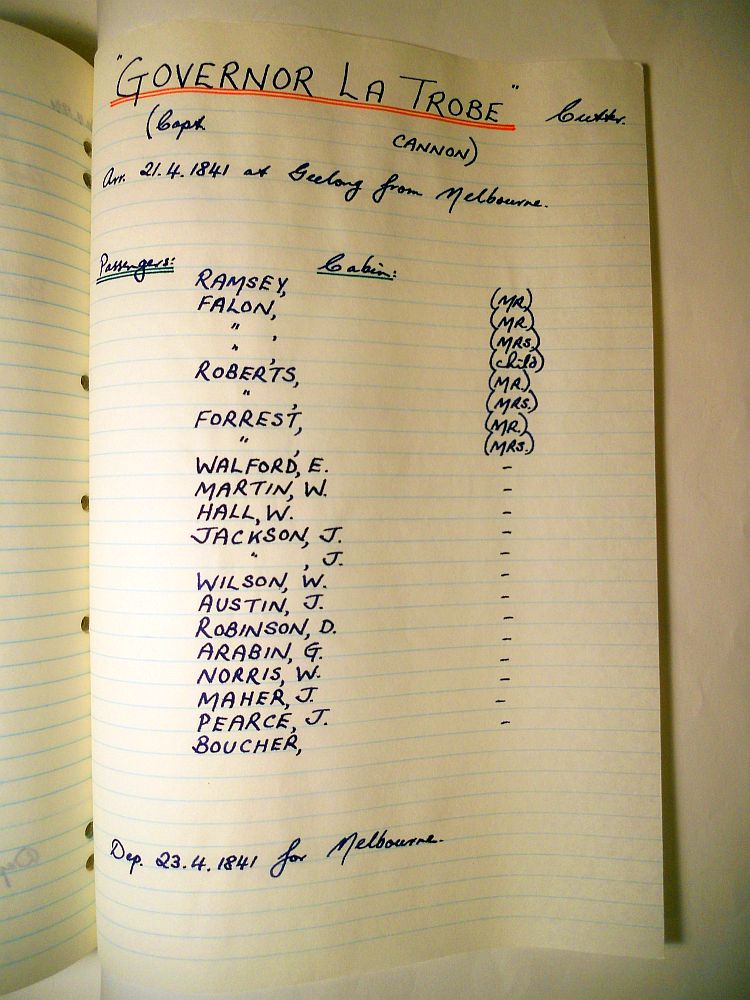 "GOVERNOR LA TROBE" Cutter.
(Capt. CANNON)
Arr. 21.4.1841 at Geelong from Melbourne.
Passengers: Cabin:
RAMSEY, (MR)
FALON, (MR.)
" , (MRS.)
" , (child)
ROBERTS, (MR.)
" , (MRS.)
FORREST, (MR.)
" , (MRS.)
WALFORD, E. -
MARTIN, W. -
HALL, W. -
JACKSON, J. -
" , J. -
WILSON, W. -
AUSTIN, J. -
ROBINSON, D. -
ARABIN, G. -
NORRIS, W. -
MAHER, J. -
PEARCE, J. -
BOUCHER,
Dep. 23.4.1841 for Melbourne.